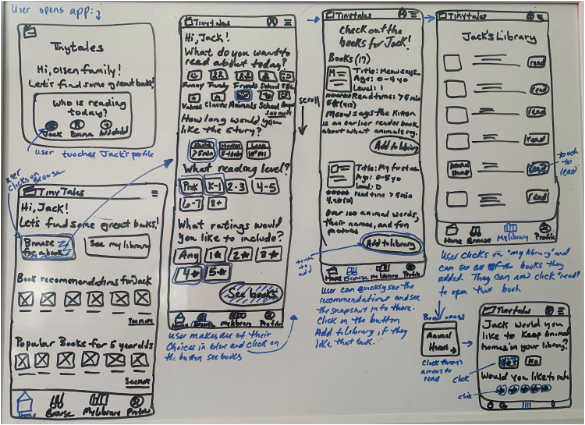 User opens app:
Tinytales
Hi, Olsen family!
Let's find some great books!
Who is reading
today?
Jack Emma
user touches Jack's profile
user
clicks browse
Tiny Tales
Hi, Jack!
Let's find some great books!
Browse
for a book
See my library
Book recommendations for Jack
See more
Popular Books for 5 year olds
See more
Home Browse My library Profile
Tinytales
Hi, Jack!
What do you want to
read about today?
Funny Family Friends School
Values Classic Animals School
See more
How long would you
like the story?
Short
>5min
What reading level?
PreK K-1 2-3 4-5
6-7 8+
What ratings would
you like to include?
Any 1★ 2★ 3★
4★ 5★
See books
Home Browse My library Profile
User makes all of their
choices in blue and click on
the button see books
scroll
Tinytales
Check out the
books for Jack!
Books (17)
Title: Meow says
Age: 0-4 yo
Level: 1
Read time: >5min
Meow says the kitten
is an earlier reader book
about what animals say.
Add to library
Title: My first
Age: 0-5 yo
Level: 0
read time >5min
Over 100 animal words,
their names, and fun
Add to library
touch
to add
Home Browse My library Profile
User can quickly see the
recommendations and see
the snapshot info there.
Click on the button
Add to library, if they
like that book.
Tinytales
Jack's Library
read
read
read
read
read
read
touch
to read
Home Browse My library Profile
User clicks on "my library" and
can see all of the books they
added. They can click "read"
to open that book.
Book opens
Animal
Homes
Click through
arrows to
read
Tinytales
Jack would you
like to keep Animal
homes in your library?
Yes No
click
Would you like to rate
click